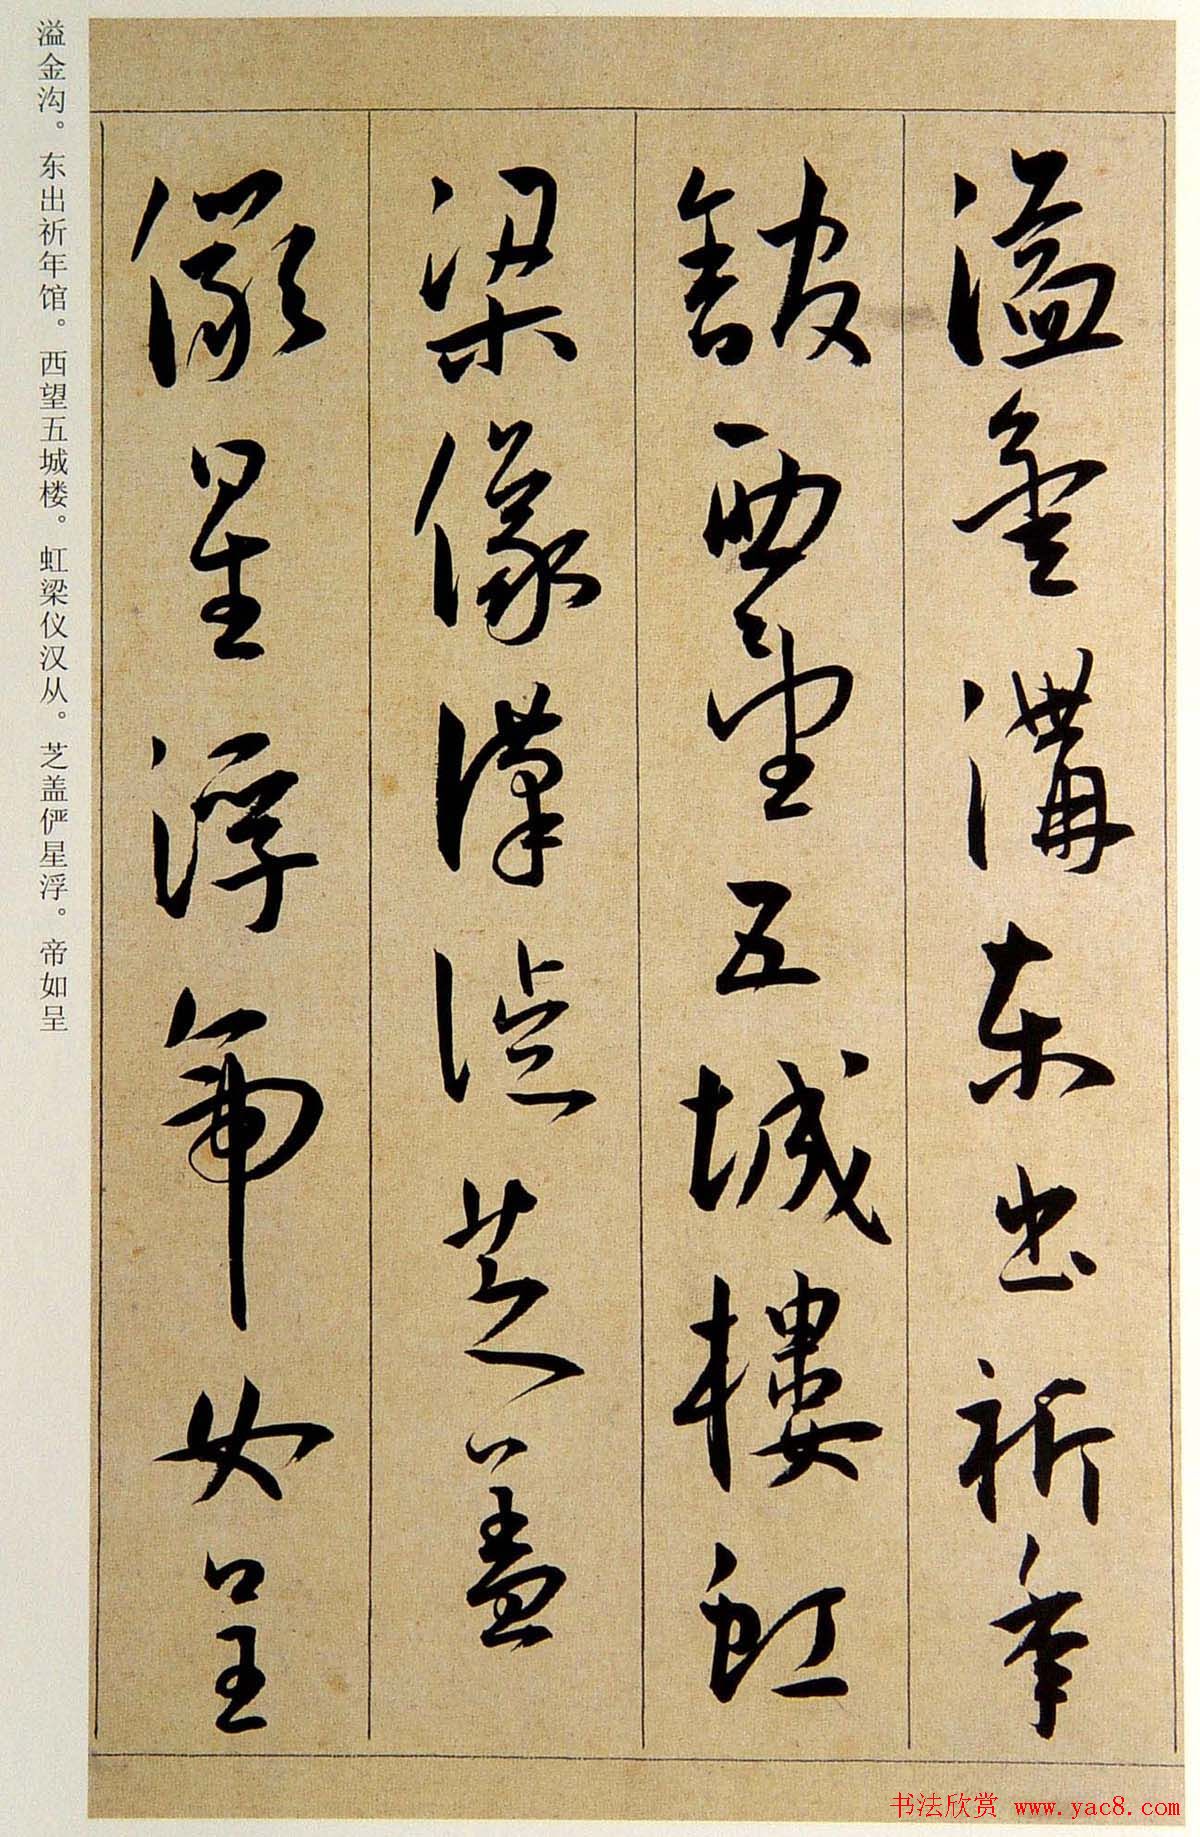 溢金溝东出祈年
舘西望五城樓虹
梁儀漢従芝盖
儼星浮帝如呈
溢金沟。东出祈年馆。西望五城楼。虹梁仪汉从。芝盖俨星浮。帝如呈
书法欣赏 www.yac8.com